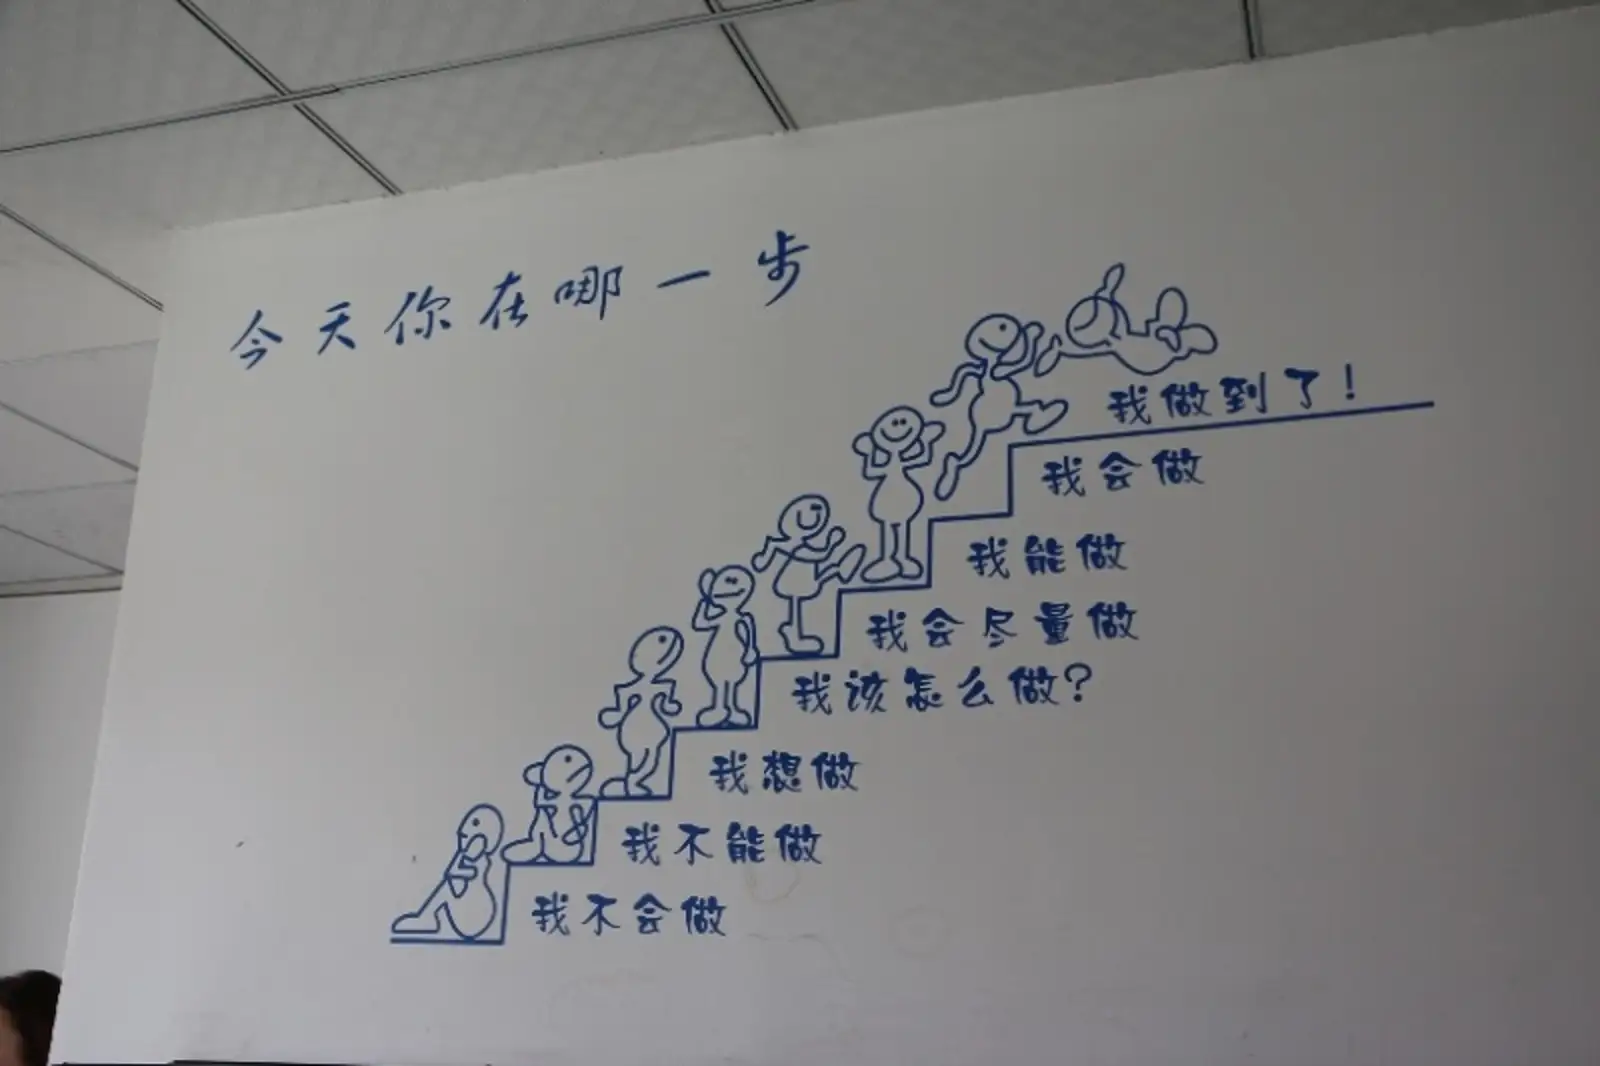 今天你在哪一步
我做到了！
我会做
我能做
我会尽量做
我该怎么做？
我想做
我不能做
我不会做